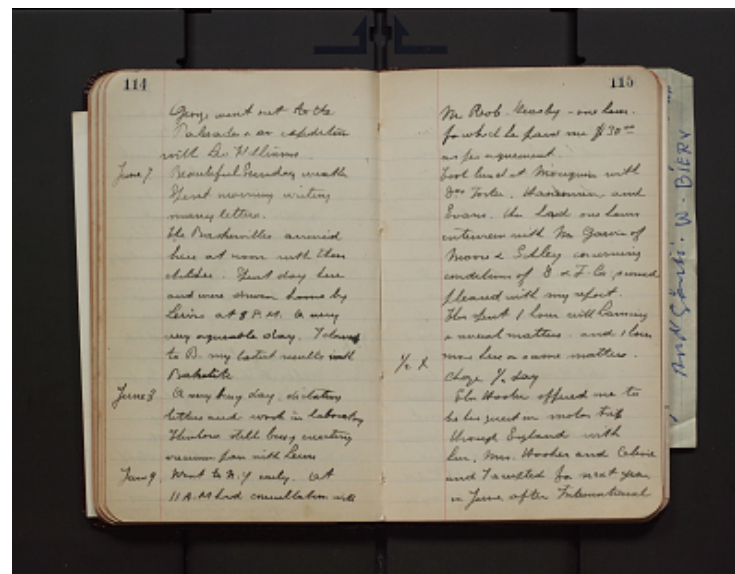 114
George went out to the
Palisades on an expedition
with Leo Williams.
June 7 Beautiful Sunday weather
Spent morning writing
many letters.
The Baskervilles arrived
here at noon with their
children. Spent day here
and were driven home by
Lewis at 8 P.M. A very
very agreeable day. I showed
to B. my latest results with
Bakelite
June 8 A very busy day, dictating
letters and work in laboratory
Thurlow still busy erecting
vacuum pan with Lewis
June 9. Went to N.Y early. at
11 A.M had consultation with
115
Mr Rob. - one hour.
for which he gave me $30 00
as per agreement.
Took lunch at Mouquin with
Drs Foster, and
Evans. Then had one hours
interview with Mr Garvin of
Moore & concerning
conditions of & Co, seemed
pleased with my report.
Then spent 1 hour with
on several matters. and 1 hour
more here on same matters.
1/2 X charge 1/2 day
Elon Hooker offered me to
be his guest in motor trip
through England with
him, Mrs. Hooker and Celine
and I accepted for next year
in June, after International
W. BIERY